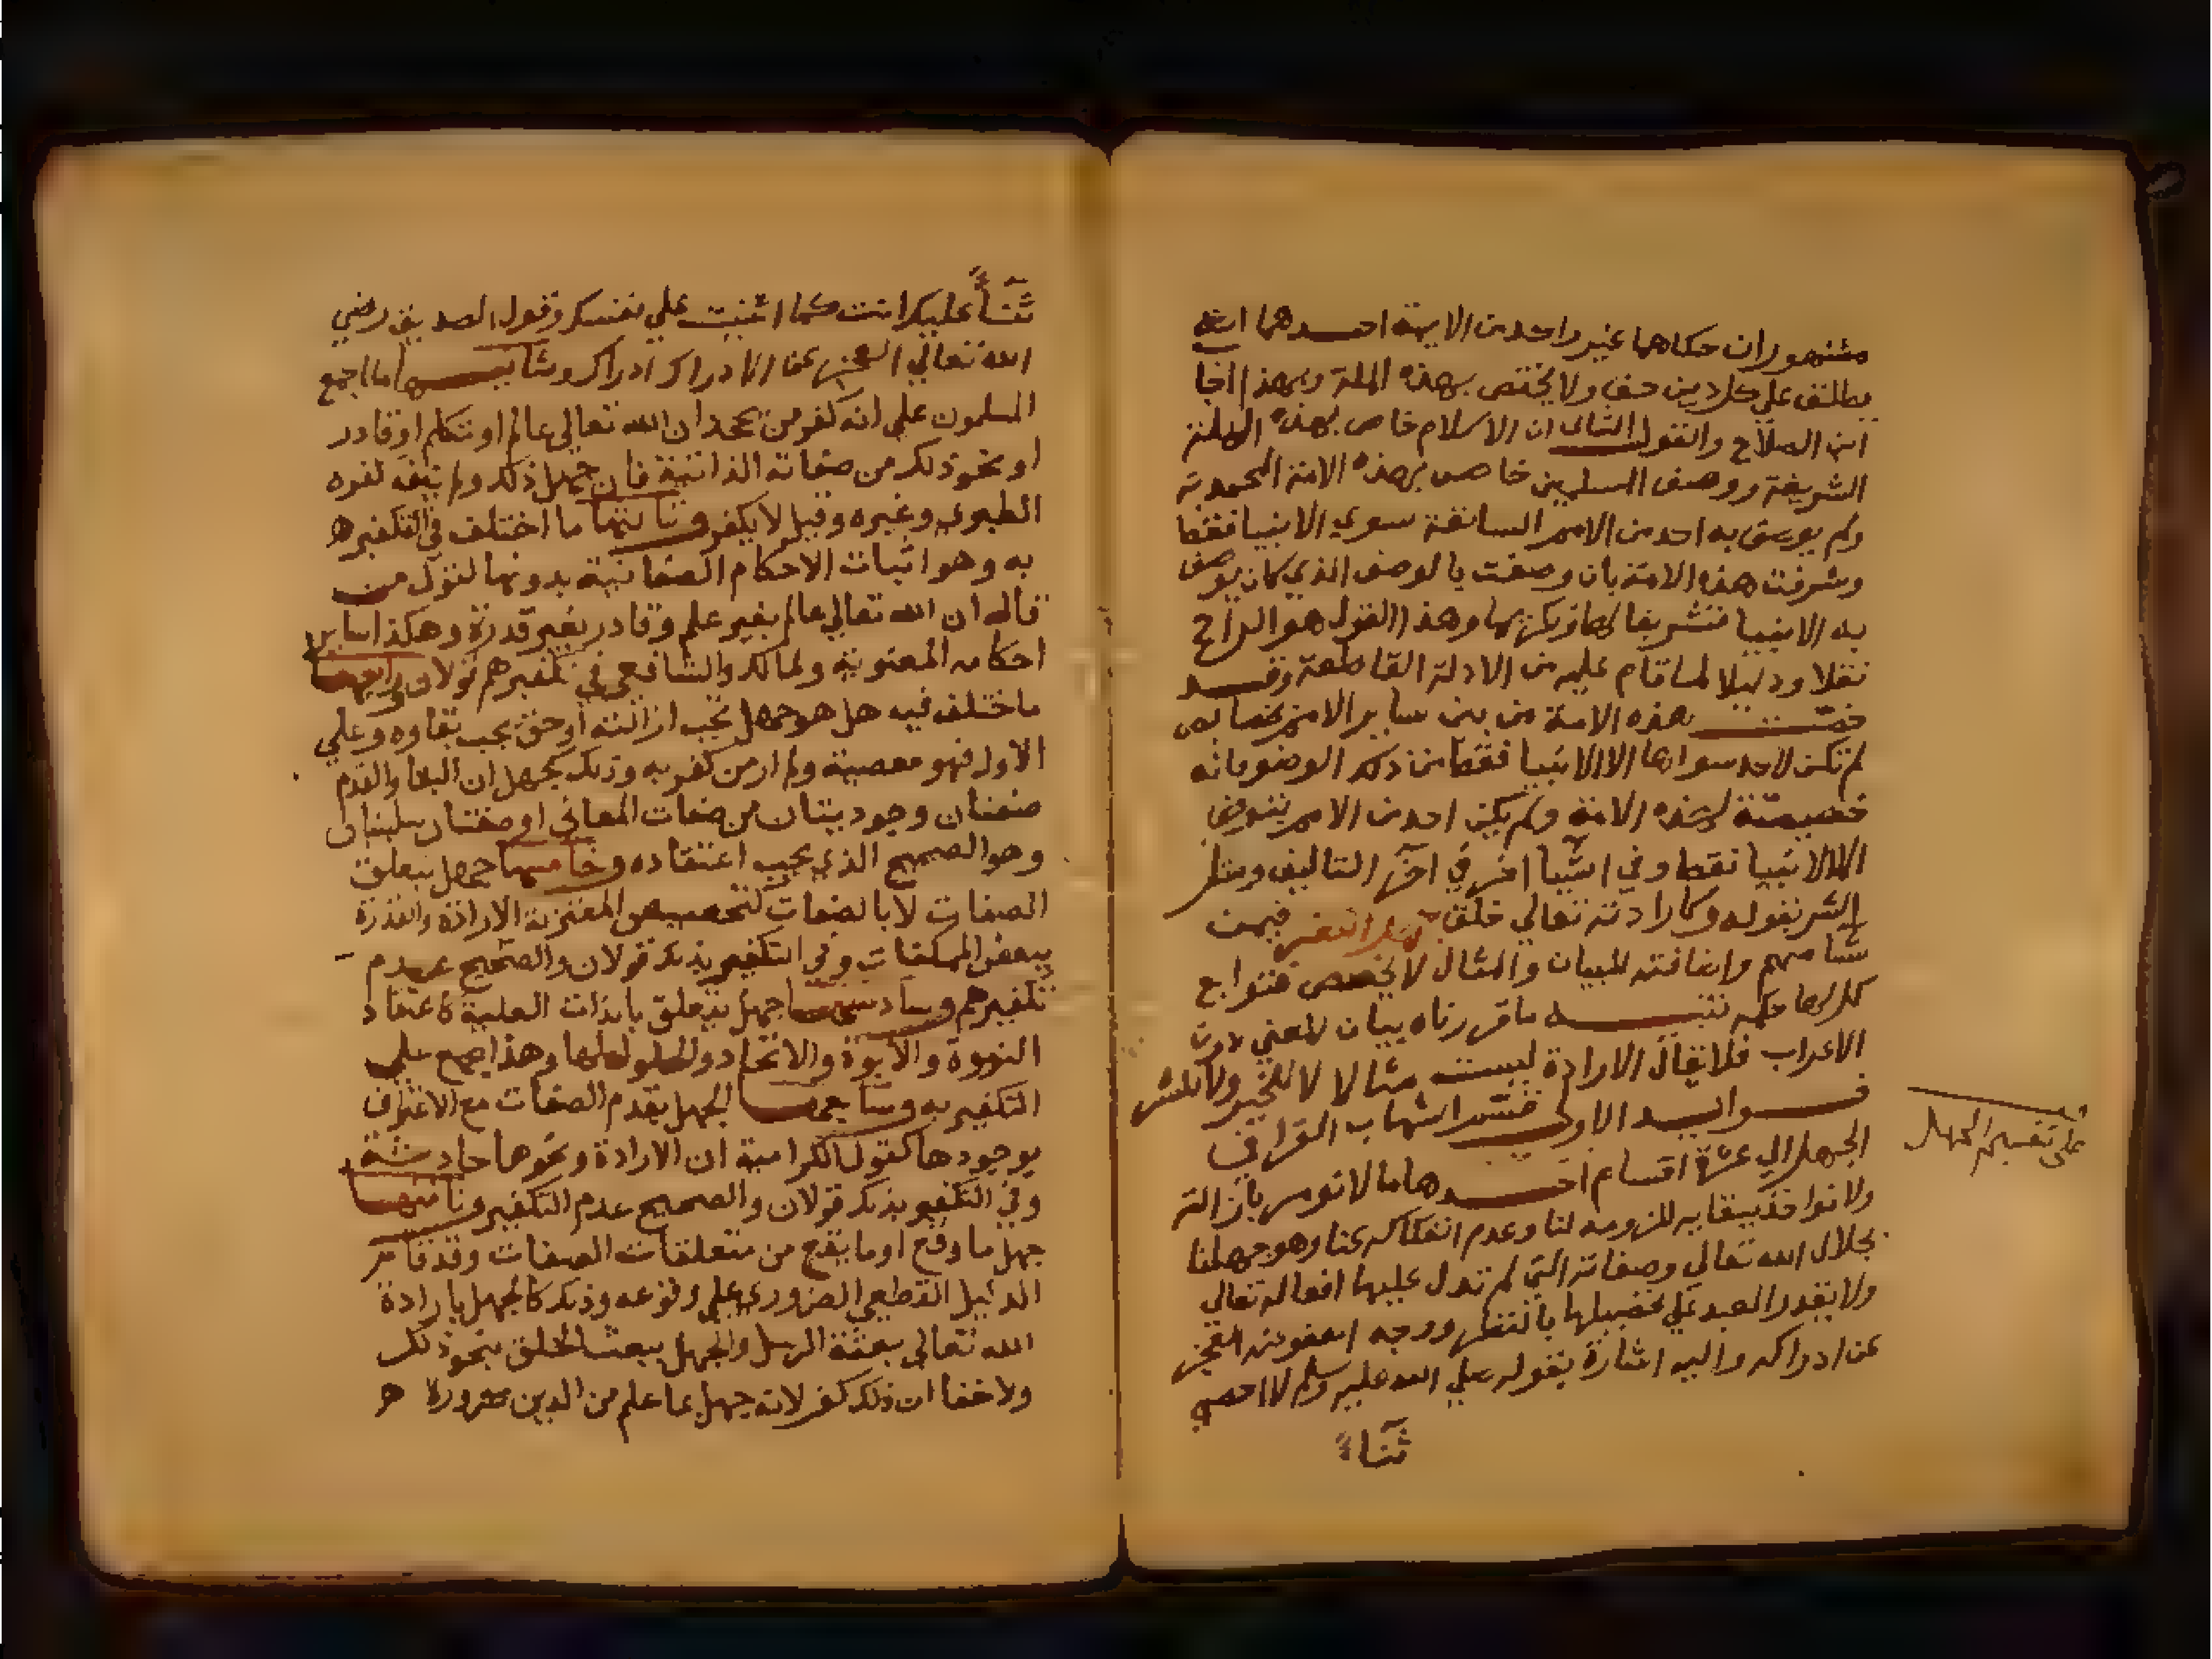 مشهوران حكاهما غير واحد من الايمة احدهما انه
يطلق علي كل دين حق ولا يختص بهذه الملة وبهذا اجا
ابن الصلاح والقول الثاني ان الاسلام خاص بهذه الملة
الشريفة ووصف المسلمين خاص بهذه الامة المحمدية
ولم يوصف به احد من الامم السابقة سوي الانبيا فقط
وشرفت هذه الامة بان وصفت بالوصف الذي كان يوصف
به الانبيا تشريفا لها وتكريما وهذا القول هو الراجح
نقلا ودليلا لما قام عليه من الادلة القاطعة وقد
خصت هذه الامة من بين ساير الامم بخصايص
لم تكن لاحد سواها الا الانبيا فقط من ذلك الوضو فانه
خصيصة لهذه الامة ولم يكن احد من الامم يتوضي
الا الانبيا فقط وفي اشيا اخر في اخر التاليف ومثل
الشر بقوله وكارادته تعالي خلق الكفر فيمن
شا منهم واضافته للبيان والمثال لا يخصص فتوابع
كل لها حكمه تنبيه ما قررناه بيان للمعني لا من
الاعراب فلا يقال الارادة ليست مثالا لا للخير ولا للشر
فوايد الاولي قسم الشهاب القرافي
الجهل الي عشرة اقسام احدها ما لا نومر بازالته
ولا نواخذ ببقايه للزومه لنا وعدم انفكاكه عنا وهو جهلنا
بجلال الله تعالي وصفاته التي لم تدل عليها افعاله تعالي
ولا يقدر العبد علي تحصيلها بالنظر ووجه العفو عنه العجز
عن ادراكه واليه اشارة بقوله صلي الله عليه وسلم لا احصي
ثناءً
علي تقسيم الجهل
ثناءً عليك انت كما اثنيت علي نفسك وقول الصديق رضي
الله تعالي العجز عن الادراك ادراك وثانيها ما اجمع
المسلمون علي انه كفر من جحد ان الله تعالي عالم او متكلم او قادر
او نحو ذلك من صفاته الذاتية فان جهل ذلك ولم ينفه كفره
الطبري وغيره وقيل لا يكفر وثالثها ما اختلف في التكفير
به وهو اثبات الاحكام الصفاتية بدونها كقول من
قال ان الله تعالي عالم بغير علم وقادر بغير قدرة وهكذا ساير
احكامه المعنوية ولمالك والشافعي في تكفيرهم قولان ورابعها
ما اختلف فيه هل هو جهل تجب ازالته او حق يجب بقاوه وعلي
الاول فهو معصية ولم ار من كفر به وذلك كجهل ان البقا والقدم
صفتان وجوديتان من صفات المعاني او صفتان سلبيتان
وهو الصحيح الذي يجب اعتقاده وخامسها جهل يتعلق
الصفات لا بالصفات كتخصيص المعتزلة الارادة والقدرة
ببعض الممكنات وفي التكفير بذلك قولان والصحيح عدم
تكفيرهم وسادسها جهل يتعلق بالذات العلية كاعتقاد
البنوة والابوة والاتحاد والحلول لها وهذا اجمع علي
التكفير به وسابعها الجهل بقدم الصفات مع الاعتراف
بوجودها كقول الكرامية ان الارادة ونحوها حادثة
وفي التكفير بذلك قولان والصحيح عدم التكفير وثامنها
جهل ما وقع او ما يقع من متعلقات الصفات وقد قام
الدليل القطعي الضروري علي وقوعه وذلك كالجهل بارادة
الله تعالي بعثة الرسل والجهل ببعث الخلق بنحو ذلك
ولا خفا ان ذلك كفر لانه جهل بما علم من الدين ضرورة